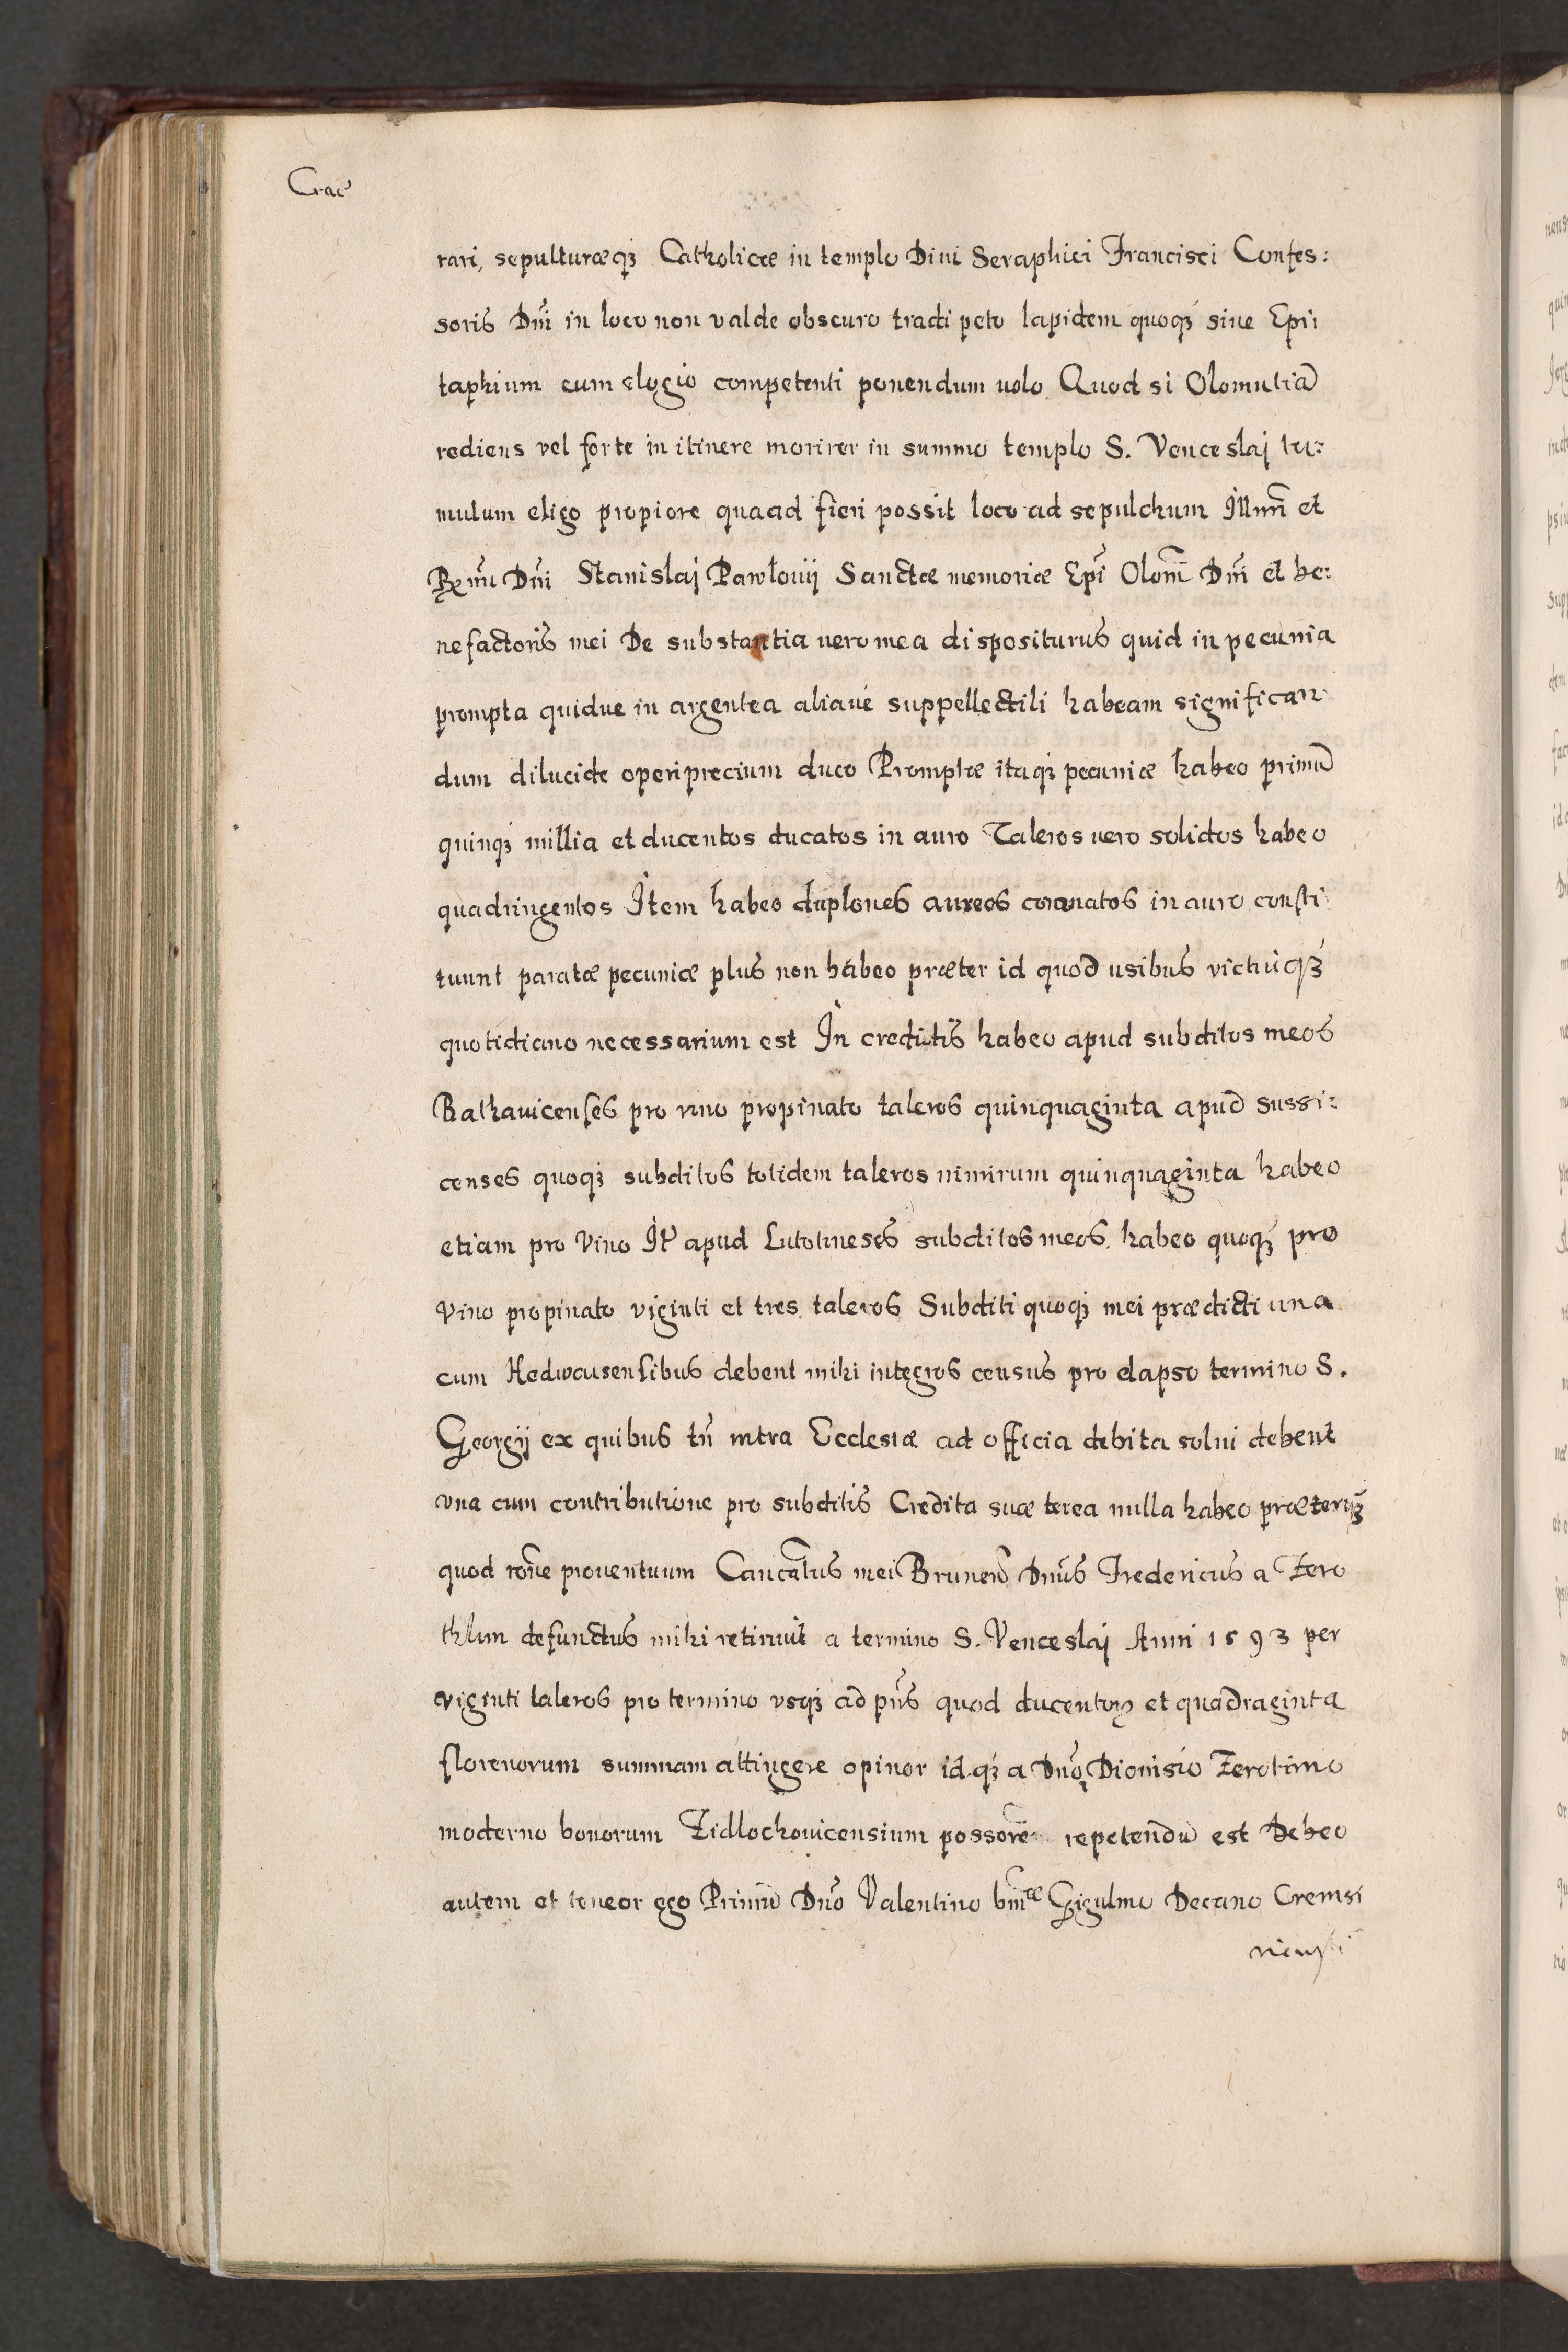 Crac
rari, sepulturæq́ꝫ Catholicæ in templo Diui Seraphici Francisci Confes:
soris Dn̄i in loco non valde obscuro tradi peto lapidem quoqꝫ siue Epi:
taphium cum elogio competenti ponendum uolo Quod si Olomutiā
rediens vel forte in itinere morirer in summo templo S. Venceslaj tu:
mulum eligo propiore quaad fieri possit loco ad sepulchum Illmi et
Rx̄mi Dn̄i Stanislaj Pawlouij Sanctæ memoriæ Ep̄i Olom̄ Dn̄i et be:
nefactoris mei De substantia uero mea dispositurus quid in pecunia
prompta quidue in argentea aliaué suppellectili habeam significan
dum dilucide operiprecium duco Promptæ itaqꝫ pecuniæ habeo primū
quinqꝫ millia et ducentos ducatos in auro Taleros uero solidos habeo
quadringentos Item habeo duplones aureos coronatos in auro consti
tuunt paratæ pecuniæ plus non habeo præter id quod usibus victuiqꝫ
quotidiano necessarium est In creditis habeo apud subditos meos
Rathauicenses pro vino propinato taleros quinquaginta apud sussi:
censes quoqꝫ subditos totidem taleros nimirum quinquaginta habeo
etiam pro Vino It apud Lutotineses subditos meos habeo quoqꝫ pro
Vino propinato viginti et tres taleros Subditi quoqꝫ mei prædicti una
cum Hedwcusensibus debent mihi integros census pro elapso termino S.
Georgij ex quibus tn̄ intra Ecclesiæ ad officia debita solui debent
vna cum contributione pro subditis Credita suæ terea nulla habeo præterqꝫ
quod rōne prouentuum Canc̄atus mei Brunen̄ Dnūs Fredericus a Zero
thin defunctus mihi retinuit a termino S. Venceslaj Anni 1593 per
viginti taleros pro termino vsqꝫ ad pn̄s quod ducentoꝝ et quadraginta
florenorum summam attingere opinor idqꝫ a Dn̄o Dionisio Zerotino
moderno bonorum Zidlochouicensium possorē repetendū est Debeo
autem et teneor ego Primū Dn̄o Valentino Gigulmo Decano Cremsi
niensi